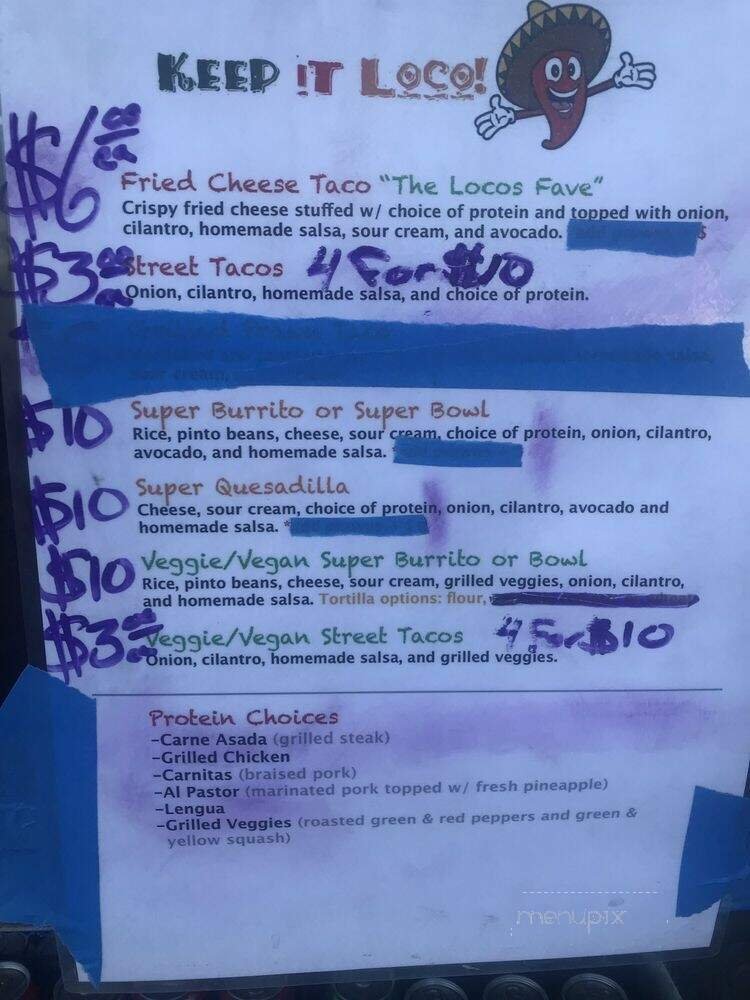 KEEP IT LOCO!
$6 00 ea
Fried Cheese Taco "The Locos Fave"
Crispy fried cheese stuffed w/ choice of protein and topped with onion,
cilantro, homemade salsa, sour cream, and avocado.
$3 00 ea Street Tacos 4 For $10
Onion, cilantro, homemade salsa, and choice of protein.
$10 Super Burrito or Super Bowl
Rice, pinto beans, cheese, sour cream, choice of protein, onion, cilantro,
avocado, and homemade salsa.
$10 Super Quesadilla
Cheese, sour cream, choice of protein, onion, cilantro, avocado and
homemade salsa. *
$10 Veggie/Vegan Super Burrito or Bowl
Rice, pinto beans, cheese, sour cream, grilled veggies, onion, cilantro,
and homemade salsa. Tortilla options: flour,
$3 00 ea Veggie/Vegan Street Tacos 4 For $10
Onion, cilantro, homemade salsa, and grilled veggies.
Protein Choices
-Carne Asada (grilled steak)
-Grilled Chicken
-Carnitas (braised pork)
-Al Pastor (marinated pork topped w/ fresh pineapple)
-Lengua
-Grilled Veggies (roasted green & red peppers and green &
yellow squash)
menupix